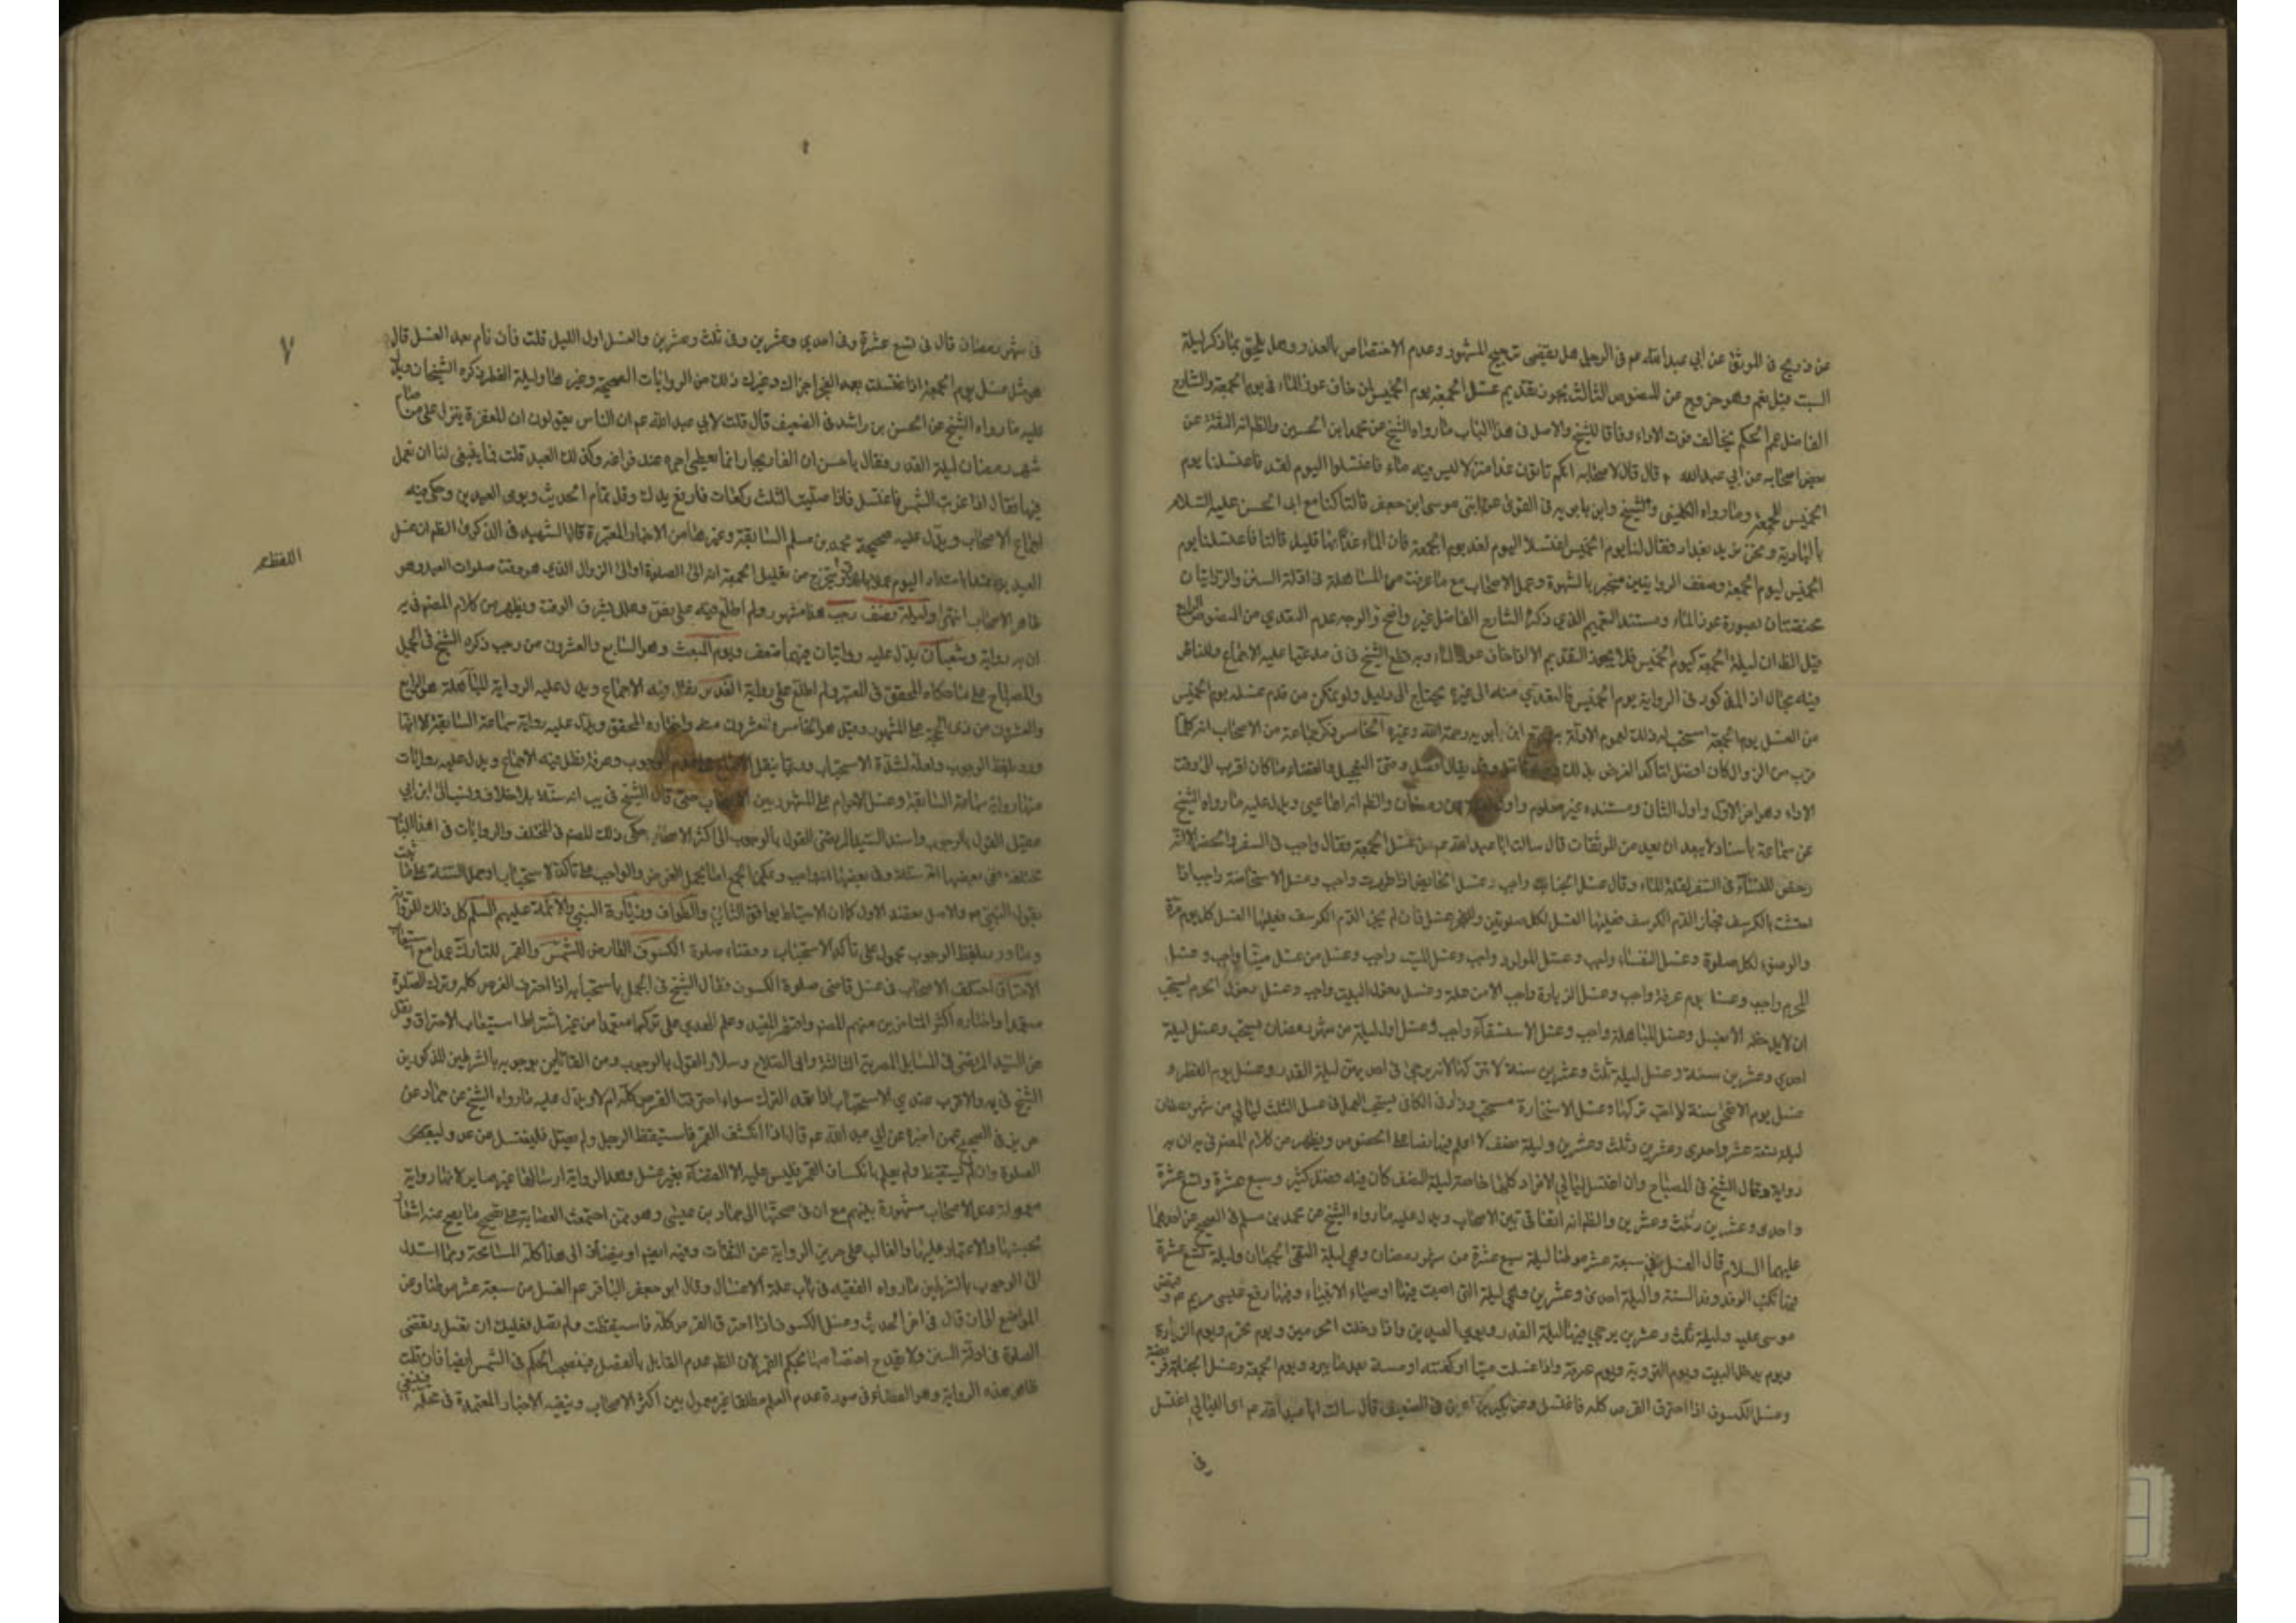 عن ذريح في الموثق عن أبي عبد الله عم في الرجل هل يقضى ترجيح المشهور وعدم الاختصاص بالعذر وهل يلحق بما ذكر ليلة
السبت قيل نعم وهو خروج عن المنصوص الثالث يجوز تقديم غسل الجمعة يوم الخميس لمن خاف عوز الماء في يوم الجمعة والشارع
الفاضل عمم الحكم بخالف فوت الاداء وفاقا للشيخ والاصل في هذا الباب ما رواه الشيخ عن محمد ابن الحسين والظ انه الثقة عن
بعض اصحابه عن ابي عبد الله قال قال لاصحابه انكم تاتون غدا منزلا ليس فيه ماء فاغتسلوا اليوم لغد فاغتسلنا يوم
الخميس للجمعة وما رواه الكليني والشيخ وابن بابويه في القوي عن ابنتي موسى ابن جعفر قالتا كنا مع ابى الحسن عليه السلام
بالبادية ونحن نريد بغداد فقال لنا يوم الخميس اغتسلا اليوم لغد يوم الجمعة فان الماء غدا بها قليل قالتا فاغتسلنا يوم
الخميس ليوم الجمعة وضعف الروايتين منجبر بالشهرة وعمل الاصحاب مع ما عرفت من المساهلة في ادلة السنن والروايتان
مختصتان بصورة عوز الماء ومستند التعميم الذي ذكره الشارع الفاضل غير واضح والوجه عدم التعدي من المنصوص الرابع
قيل الظ ان ليلة الجمعة كيوم الخميس فلا يجوز التقديم الا اذا خاف عوز الماء وبه قطع الشيخ في ف مدعيا عليه الاجماع وللناظر
فيه مجال اذ المذكور في الرواية يوم الخميس فالتعدي منه الى غيره يحتاج الى دليل ولو تمكن من قدم غسله يوم الخميس
من الغسل يوم الجمعة استحب له ذلك لعموم الادلة وبه صرح ابن بابويه رحمه الله وغيره الخامس ذكر جماعة من الاصحاب انه كلما
قرب من الزوال كان افضل لتاكد الغرض بذلك وفيه تامل وقد يقال افضل وقتى التعجيل والقضاء ما كان اقرب الى وقت
الاداء وهو اخر الاول واول الثاني ومستنده غير معلوم واول ليلة من رمضان والظ انه اجماعي ويدل عليه ما رواه الشيخ
عن سماعة باسناد لا يبعد ان يعد من الموثقات قال سالت ابا عبد الله عم عن غسل الجمعة فقال واجب في السفر والحضر الا انه
رخص للنساء في السفر لقلة الماء وقال غسل الجنابة واجب وغسل الحائض اذا طهرت واجب وغسل الاستحاضة واجب اذا
احتشت بالكرسف فجاز الدم الكرسف فعليها الغسل لكل صلوتين وللفجر غسل فان لم يجز الدم الكرسف فعليها الغسل كل يوم مرة
والوضوء لكل صلوة وغسل النفساء واجب وغسل المولود واجب وغسل الميت واجب وغسل من غسل ميتا واجب وغسل
المحرم واجب وغسل يوم عرفة واجب وغسل الزيارة واجب الا من علة وغسل دخول البيت واجب وغسل دخول الحرم يستحب
ان لا يدخله الا بغسل وغسل المباهلة واجب وغسل الاستسقاء واجب وغسل اول ليلة من شهر رمضان يستحب وغسل ليلة
احدى وعشرين سنة وغسل ليلة ثلث وعشرين سنة لا تتركها لانه يرجى في احديهن ليلة القدر وغسل يوم الفطر و
غسل يوم الاضحى سنة لا احب تركها وغسل الاستخارة مستحب وزاد في الكافي يستحب العمل في غسل الثلث ليالي من شهر رمضان
ليلة تسعة عشر واحدى وعشرين وثلث وعشرين وليلة نصفه لا اعلم فيها نصا على الخصوص ويظهر من كلام المصنف في يه ان به
رواية وقال الشيخ في المصباح وان اغتسل ليالي الافراد كلها خاصة ليلة النصف كان فيه فضل كثير وسبع عشرة وتسع عشرة
واحدى وعشرين وثلث وعشرين والظ انه اتفاقي بين الاصحاب ويدل عليه ما رواه الشيخ عن محمد بن مسلم في الصحيح عن احدهما
عليهما السلام قال الغسل في سبعة عشر موطنا ليلة سبع عشرة من شهر رمضان وهي ليلة التقى الجمعان وليلة تسع عشرة
فيها تكتب الوفد وفد السنة والليلة احدى وعشرين وهي ليلة التي اصيب فيها اوصياء الانبياء وفيها رفع عيسى مريم عم وقبض
موسى عليه وليلة ثلث وعشرين يرجى فيها ليلة القدر ويومي العيدين واذا دخلت الحرمين ويوم تحرم ويوم الزيارة
ويوم يدخل البيت ويوم التروية ويوم عرفة واذا غسلت ميتا او كفنته او مسسته بعد ما يبرد ويوم الجمعة وغسل الجنابة فريضة
وغسل الكسوف اذا احترق القرص كله فاغتسل وعن بكير بن اعين في الصحيح قال سالت ابا عبد الله عم اي الليالي اغتسل
في
في شهر رمضان قال في تسع عشرة وفي احدى وعشرين وفي ثلث وعشرين والغسل اول الليل قلت فان نام بعد الغسل قال
هو مثل غسل يوم الجمعة اذا اغتسلت بعد الفجر اجزاك وغيره ذلك من الروايات الصحيحة وغيرها وليلة الفطر ذكره الشيخان ويدل
عليه ما رواه الشيخ عن الحسن بن راشد في الضعيف قال قلت لابي عبد الله عم ان الناس يقولون ان المغفرة ينزل على من صام
شهر رمضان ليلة القدر فقال يا حسن ان القاريجار انما يعطى اجره عند فراغه وكذلك العيد قلت فما ينبغي لنا ان نعمل
فيها فقال اذا غربت الشمس فاغتسل فاذا صليت الثلث ركعات فارفع يدك وقل تمام الحديث ويومى العيدين وحكى فيه
اجماع الاصحاب ويدل عليه صحيحة محمد بن مسلم السابقة وغيرها من الاخبار المعتبرة قال الشهيد في الذكرى الظ ان غسل
العيد يمتد بامتداد اليوم عملا باطلاق ويتخرج من تعليل الجمعة انه الى الصلوة او الى الزوال الذي هو وقت صلوات العيد وهو
اللفظ
ظاهر الاصحاب انتهى وليلة نصف رجب هذا مشهور ولم اطلع فيه على نص وعلل بشرف الوقت ويظهر من كلام المصنف في يه
ان به رواية وشعبان يدل عليه روايتان فيهما ضعف ويوم المبعث وهو السابع والعشرون من رجب ذكره الشيخ في الجمل
والمصباح على ما حكاه المحقق في المعتبر ولم اطلع على رواية الغدير نقل فيه الاجماع ويدل عليه الرواية المباهلة هو الرابع
والعشرون من ذى الحجة على المشهور وقيل هو الخامس والعشرون منه واختاره المحقق ويدل عليه رواية سماعة السابقة لا انها
ورد بلفظ الوجوب ولعله لشدة الاستحباب وربما ينقل الاجماع على عدم الوجوب وعرفة نقل فيه الاجماع ويدل عليه روايات
منها رواية سماعة السابقة وغسل الاحرام على المشهور بين الاصحاب حتى قال الشيخ في يب انه سنة بلا خلاف ونسب الى ابن ابي
عقيل القول بالوجوب واسند السيد المرتضى القول بالوجوب الى اكثر الاصحاب حكى ذلك المصنف في المختلف والروايات في هذا الباب
مختلفة ففي بعضها انه سنة وفي بعضها انه واجب ويمكن الجمع اما بحمل الفرض والواجب على تاكد الاستحباب او حمل السنة على ما ثبت
بقول النبي ص والاصل يعضد الاول كما ان الاحتياط يوافق الثاني والطواف وزيارة النبي والائمة عليهم السلم كل ذلك للروايات
وما ورد بلفظ الوجوب محمول على تاكد الاستحباب وقضاء صلوة الكسوف العارض للشمس والقمر للتارك عمدا مع استيعاب
الاحتراق اختلف الاصحاب في غسل قاضي صلوة الكسوف فقال الشيخ في الجمل باستحبابه اذا احترق القرص كله وترك الصلوة
متعمدا واختاره اكثر المتاخرين منهم المصنف واقتصر المفيد وعلم الهدى على تركها متعمدا من غير اشتراط استيعاب الاحتراق ونقل
عن السيد المرتضى في المسايل المصرية الثالثة وابى الصلاح وسلار القول بالوجوب ومن القائلين بوجوبه بالشرطين المذكورين
الشيخ في يه والاقرب عندي الاستحباب اذا تعمد الترك سواء احترقت القرص كله ام لا ويدل عليه ما رواه الشيخ عن حماد عن
حريز في الصحيح عمن اخبره عن ابي عبد الله عم قال اذا انكسف القمر فاستيقظ الرجل ولم يصل فليغتسل من غد وليقض
الصلوة وان لم يستيقظ ولم يعلم بانكساف القمر فليس عليه الا القضاء بغير غسل وهذه الرواية ارسالها غير ضاير لانها رواية
معمولة عند الاصحاب مشهورة بينهم مع ان في صحتها الى حماد بن عيسى وهو ممن اجتمعت العصابة على تصحيح ما يصح عنه اشعار
بحسنها والاعتماد عليها والغالب على حريز الرواية عن الثقات وفيه ايضا تاييد او ينضاف الى هذا كله المسامحة ومما استدل
الى الوجوب بالشرطين ما رواه الفقيه في باب علة الاغسال وقال ابو جعفر الباقر عم الغسل من سبعة عشر موطنا وعن
المواضع الى ان قال في اخر الحديث وغسل الكسوف اذا احترق القرص كله فاستيقظت ولم تصل فعليك ان تغتسل وتقضى
الصلوة في ادلة السنن ولا يقدح اختصاصها بحكم القمر لان الظ عدم القايل بالفصل فينسحب الحكم في الشمس ايضا فان قلت
ظاهر هذه الرواية وهو القضاء في صورة عدم العلم مطلقا غير معمول بين اكثر الاصحاب وينفيه الاخبار المعتمدة في محله فينبغي
٧